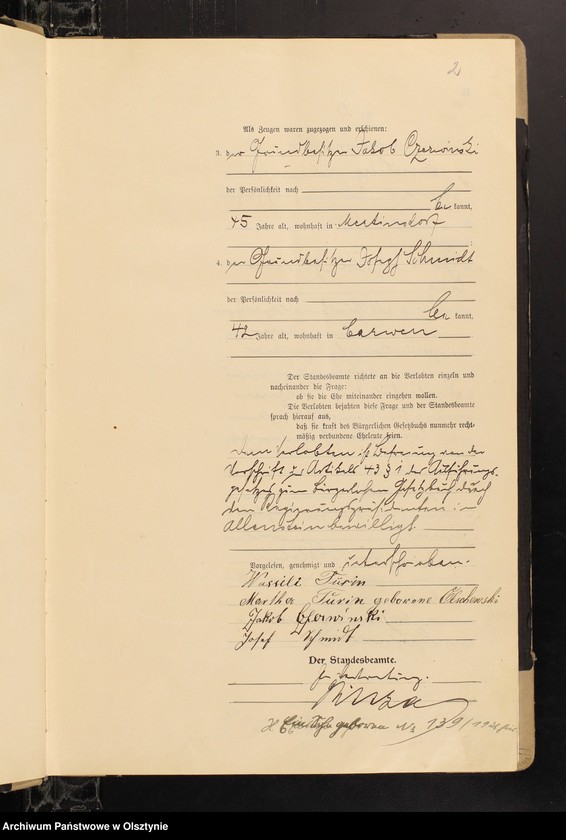 2
Als Zeugen waren zugezogen und erschienen:
3. der Grundbesitzer Jakob Czerwinski
der Persönlichkeit nach
be kannt,
45 Jahre alt, wohnhaft in Mertinsdorf
4. der Grundbesitzer Josef Schmidt
der Persönlichkeit nach
be kannt,
42 Jahre alt, wohnhaft in
Der Standesbeamte richtete an die Verlobten einzeln und
nacheinander die Frage:
ob sie die Ehe miteinander eingehen wollen.
Die Verlobten bejahten diese Frage und der Standesbeamte
sprach hierauf aus,
daß sie kraft des Bürgerlichen Gesetzbuchs nunmehr recht-
mäßig verbundene Eheleute seien.
Den Verlobten ist Befreiung von der
Vorschrift des Artikels 43 § 1 des Ausführungs-
gesetzes zum Bürgerlichen Gesetzbuch durch
den Regierungspräsidenten in
Allenstein bewilligt
Vorgelesen, genehmigt und unterschrieben.
Wassili Turin
Martha Turin geborene Olschewski
Jakob
Josef
Der Standesbeamte.
In Vertretung.
geboren No 139/
Archiwum Państwowe w Olsztynie